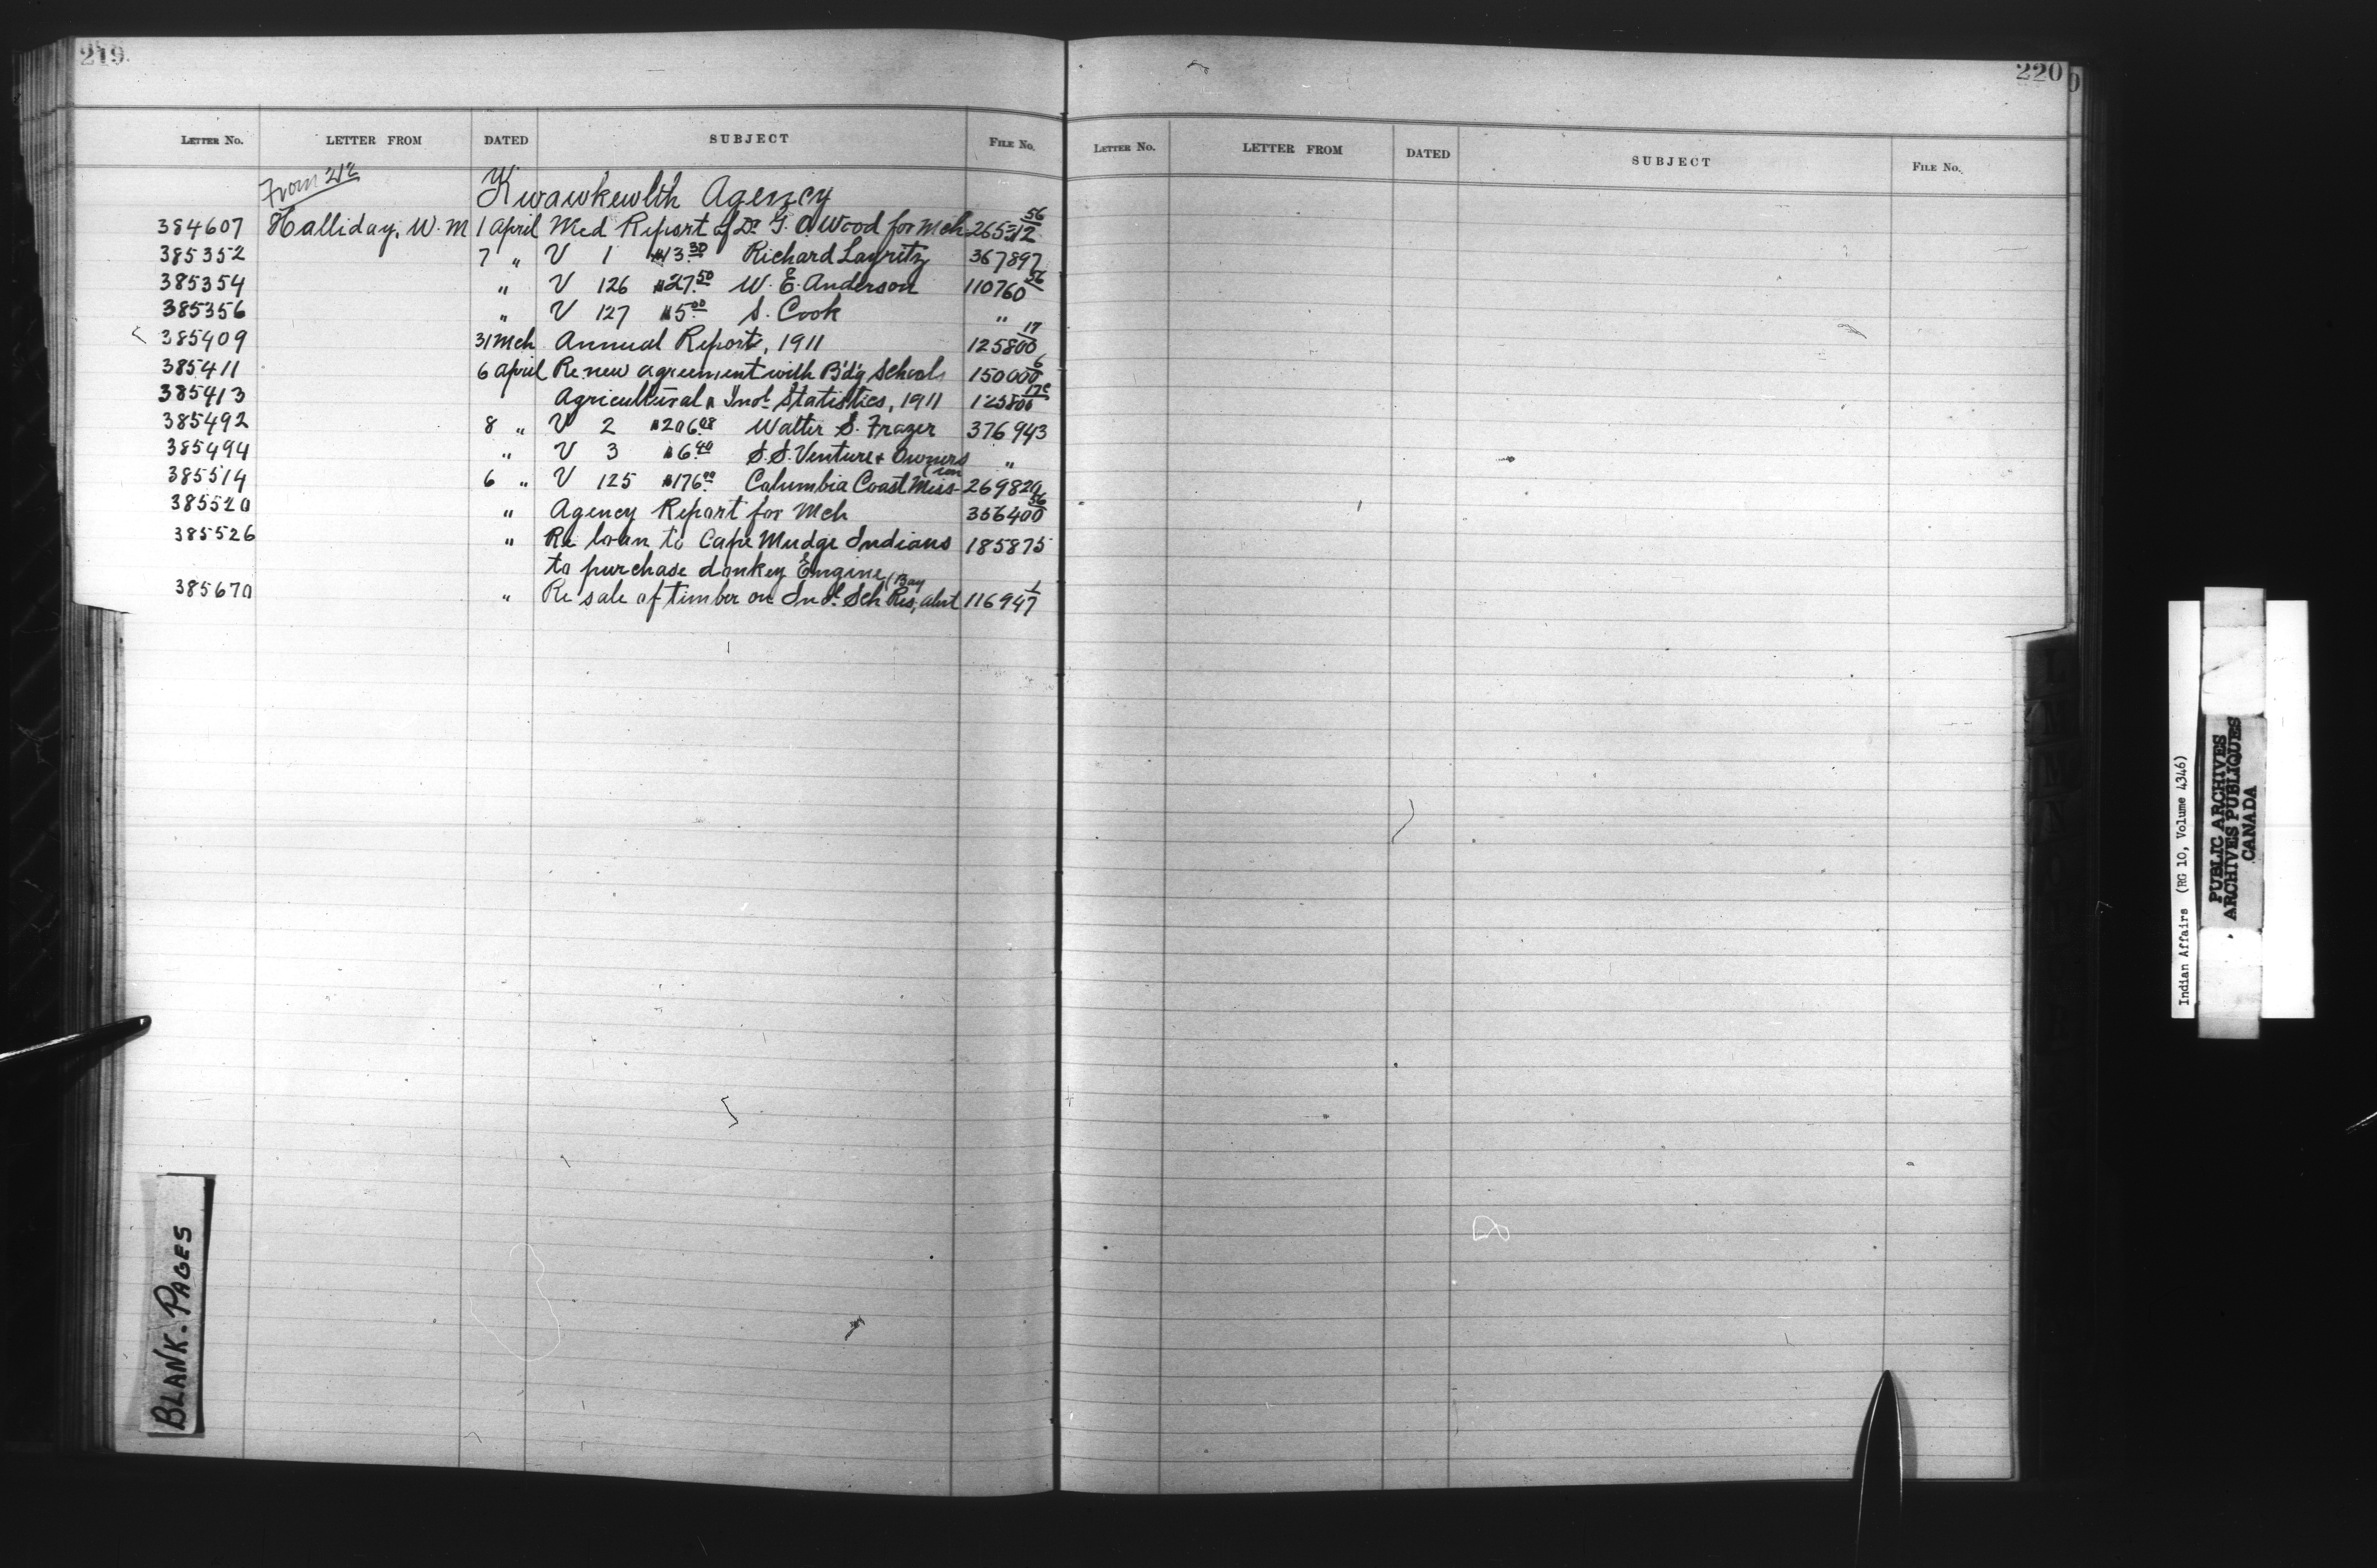 219.
LETTER NO. LETTER FROM DATED SUBJECT FILE NO.
From
Kwawkewlth Agency
384607 Halliday, W. M 1 April Med Report of Dr for Mch
385352 7 " V 1 $13.30 Richard Layritz 367897
385354 " V 126 $27.50 W. E. Anderson 110760 56
385356 " V 127 $5.00 S. Cook "
385409 31 Mch Annual Report, 1911 125800 17
385411 6 April Re new agreement with B'd'g Schools 150000 6
385413 Agricultural & Ind'l Statistics, 1911
385492 8 " V 2 $206.08 Walter S. Frazer 376943
385494 " V 3 $6.40 S.S. Venture & Owners "
385514 6 " V 125 $176.00 Columbia Coast Miss- (ion 269820
385520 " Agency Report for Mch 356400 56
385526 " Re loan to Cape Mudge Indians 185875
to purchase donkey Engine
385670 " Re sale of timber on Ind. Sch Res, Alert (Bay 116947 1
BLANK. PAGES
220
LETTER NO. LETTER FROM DATED SUBJECT FILE NO.
Indian Affairs (RG 10, Volume 4346)
PUBLIC ARCHIVES
ARCHIVES PUBLIQUES
CANADA